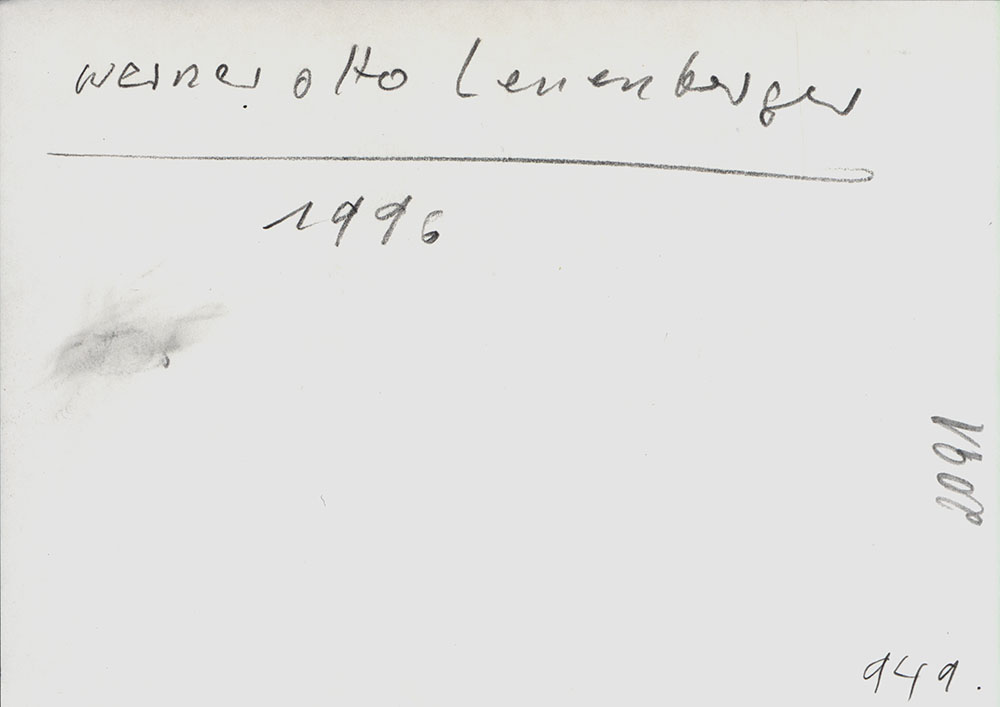 werner otto Leuenberger
1996
2091
949.